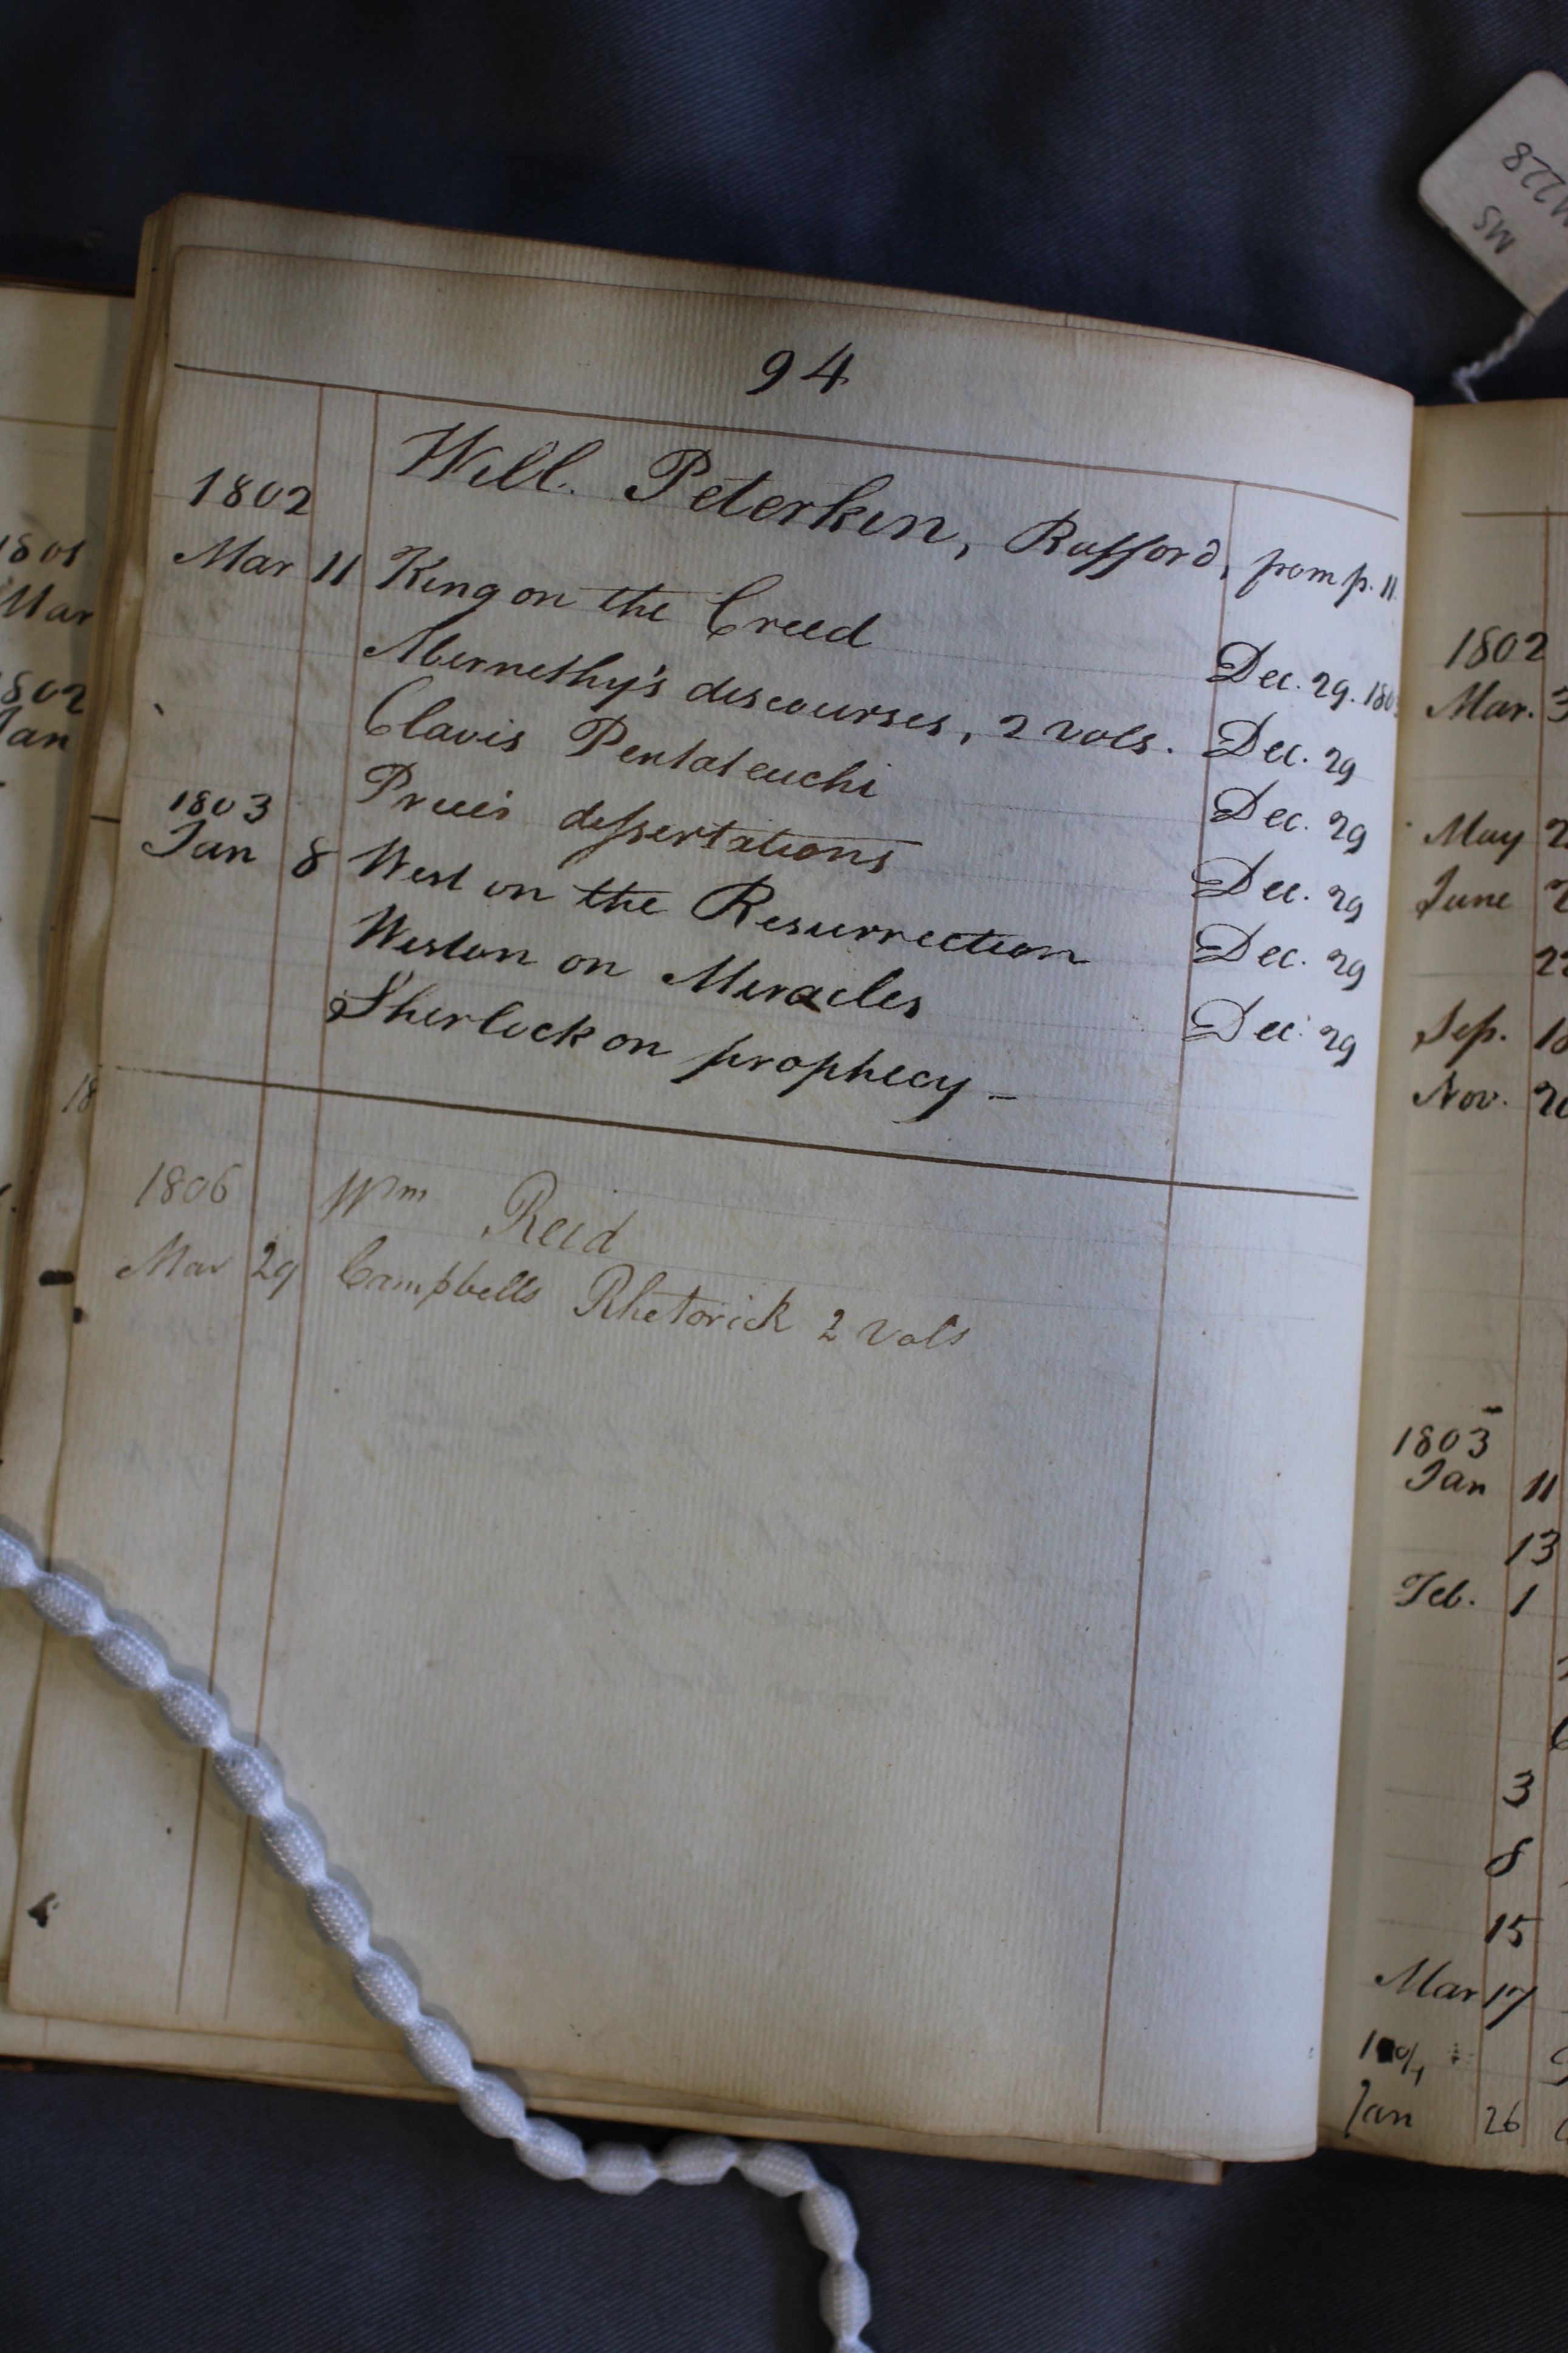 MS
94
Will. Peterkin, Rafford, from p. 11.
1802
Mar 11 King on the Creed Dec. 29. 180
Abernethy's discourses, 2 vols. Dec. 29
Clavis Pentateuchi Dec. 29
Price's dissertations Dec. 29
1803
Jan 8 West on the Resurrection Dec. 29
Weston on Miracles Dec. 29
Sherlock on prophecy –
1806 Wm Reid
Mar 29 Campbells Rhetorick 2 vols
1801
Mar
1802
Jan
18
1802
Mar. 3
May 2
June 2
22
Sep. 18
Nov. 20
1803
Jan 11
13
Feb. 1
3
8
15
Mar 17
Jan 26